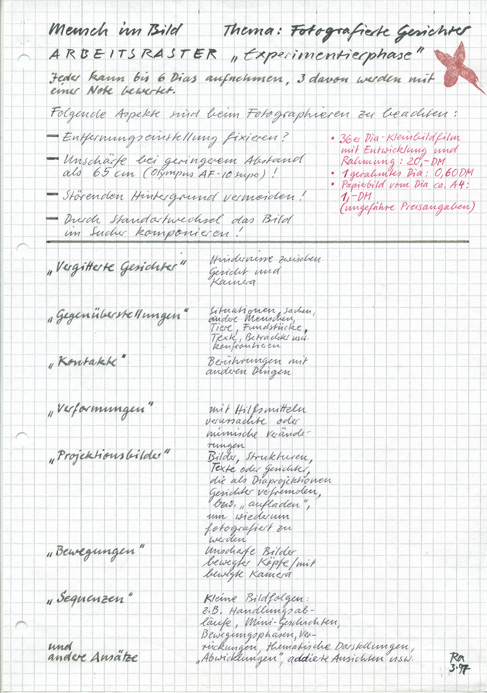 Mensch im Bild Thema: Fotografierte Gesichter
ARBEITSRASTER „Experimentierphase"
Jeder kann bis 6 Dias aufnehmen, 3 davon werden mit
einer Note bewertet.
Folgende Aspekte sind beim Fotographieren zu beachten:
– Entfernungseinstellung fixieren?
– Unschärfe bei geringerem Abstand
als 65 cm (Olympus AF-10 supo)!
– Störenden Hintergrund vermeiden!
– Durch Standortwechsel das Bild
im Sucher komponieren!
• 36er Dia-Kleinbildfilm
mit Entwicklung und
Rahmung: 20,-DM
• 1 gerahmtes Dia: 0,60DM
• Papierbild vom Dia ca. A4:
1,-DM
(ungefähre Preisangaben)
„Vergitterte Gesichter" Hindernisse zwischen
Gesicht und
Kamera
„Gegenüberstellungen" Situationen, Sachen,
andre Menschen,
Tiere, Fundstücke,
Texte, Betrachter mit-
konfrontieren
„Kontakte" Berührungen mit
anderen Dingen
„Verformungen" mit Hilfsmitteln
verursachte oder
mimische Verände-
rungen
„Projektionsbilder" Bilder, Strukturen,
Texte oder Gesichter,
die als Diaprojektionen
Gesichter verfremden,
bzw. „aufladen",
um wiederum
fotografiert zu
werden
„Bewegungen" Unscharfe Bilder
bewegter Köpfe/mit
bewegter Kamera
„Sequenzen" Kleine Bildfolgen:
z.B. Handlungsab-
läufe, Mini-Geschichten,
Bewegungsphasen, Ver-
rückungen, thematische Darstellungen,
und
andere Ansätze „Abwicklungen", addierte Ansichten usw.
3.97